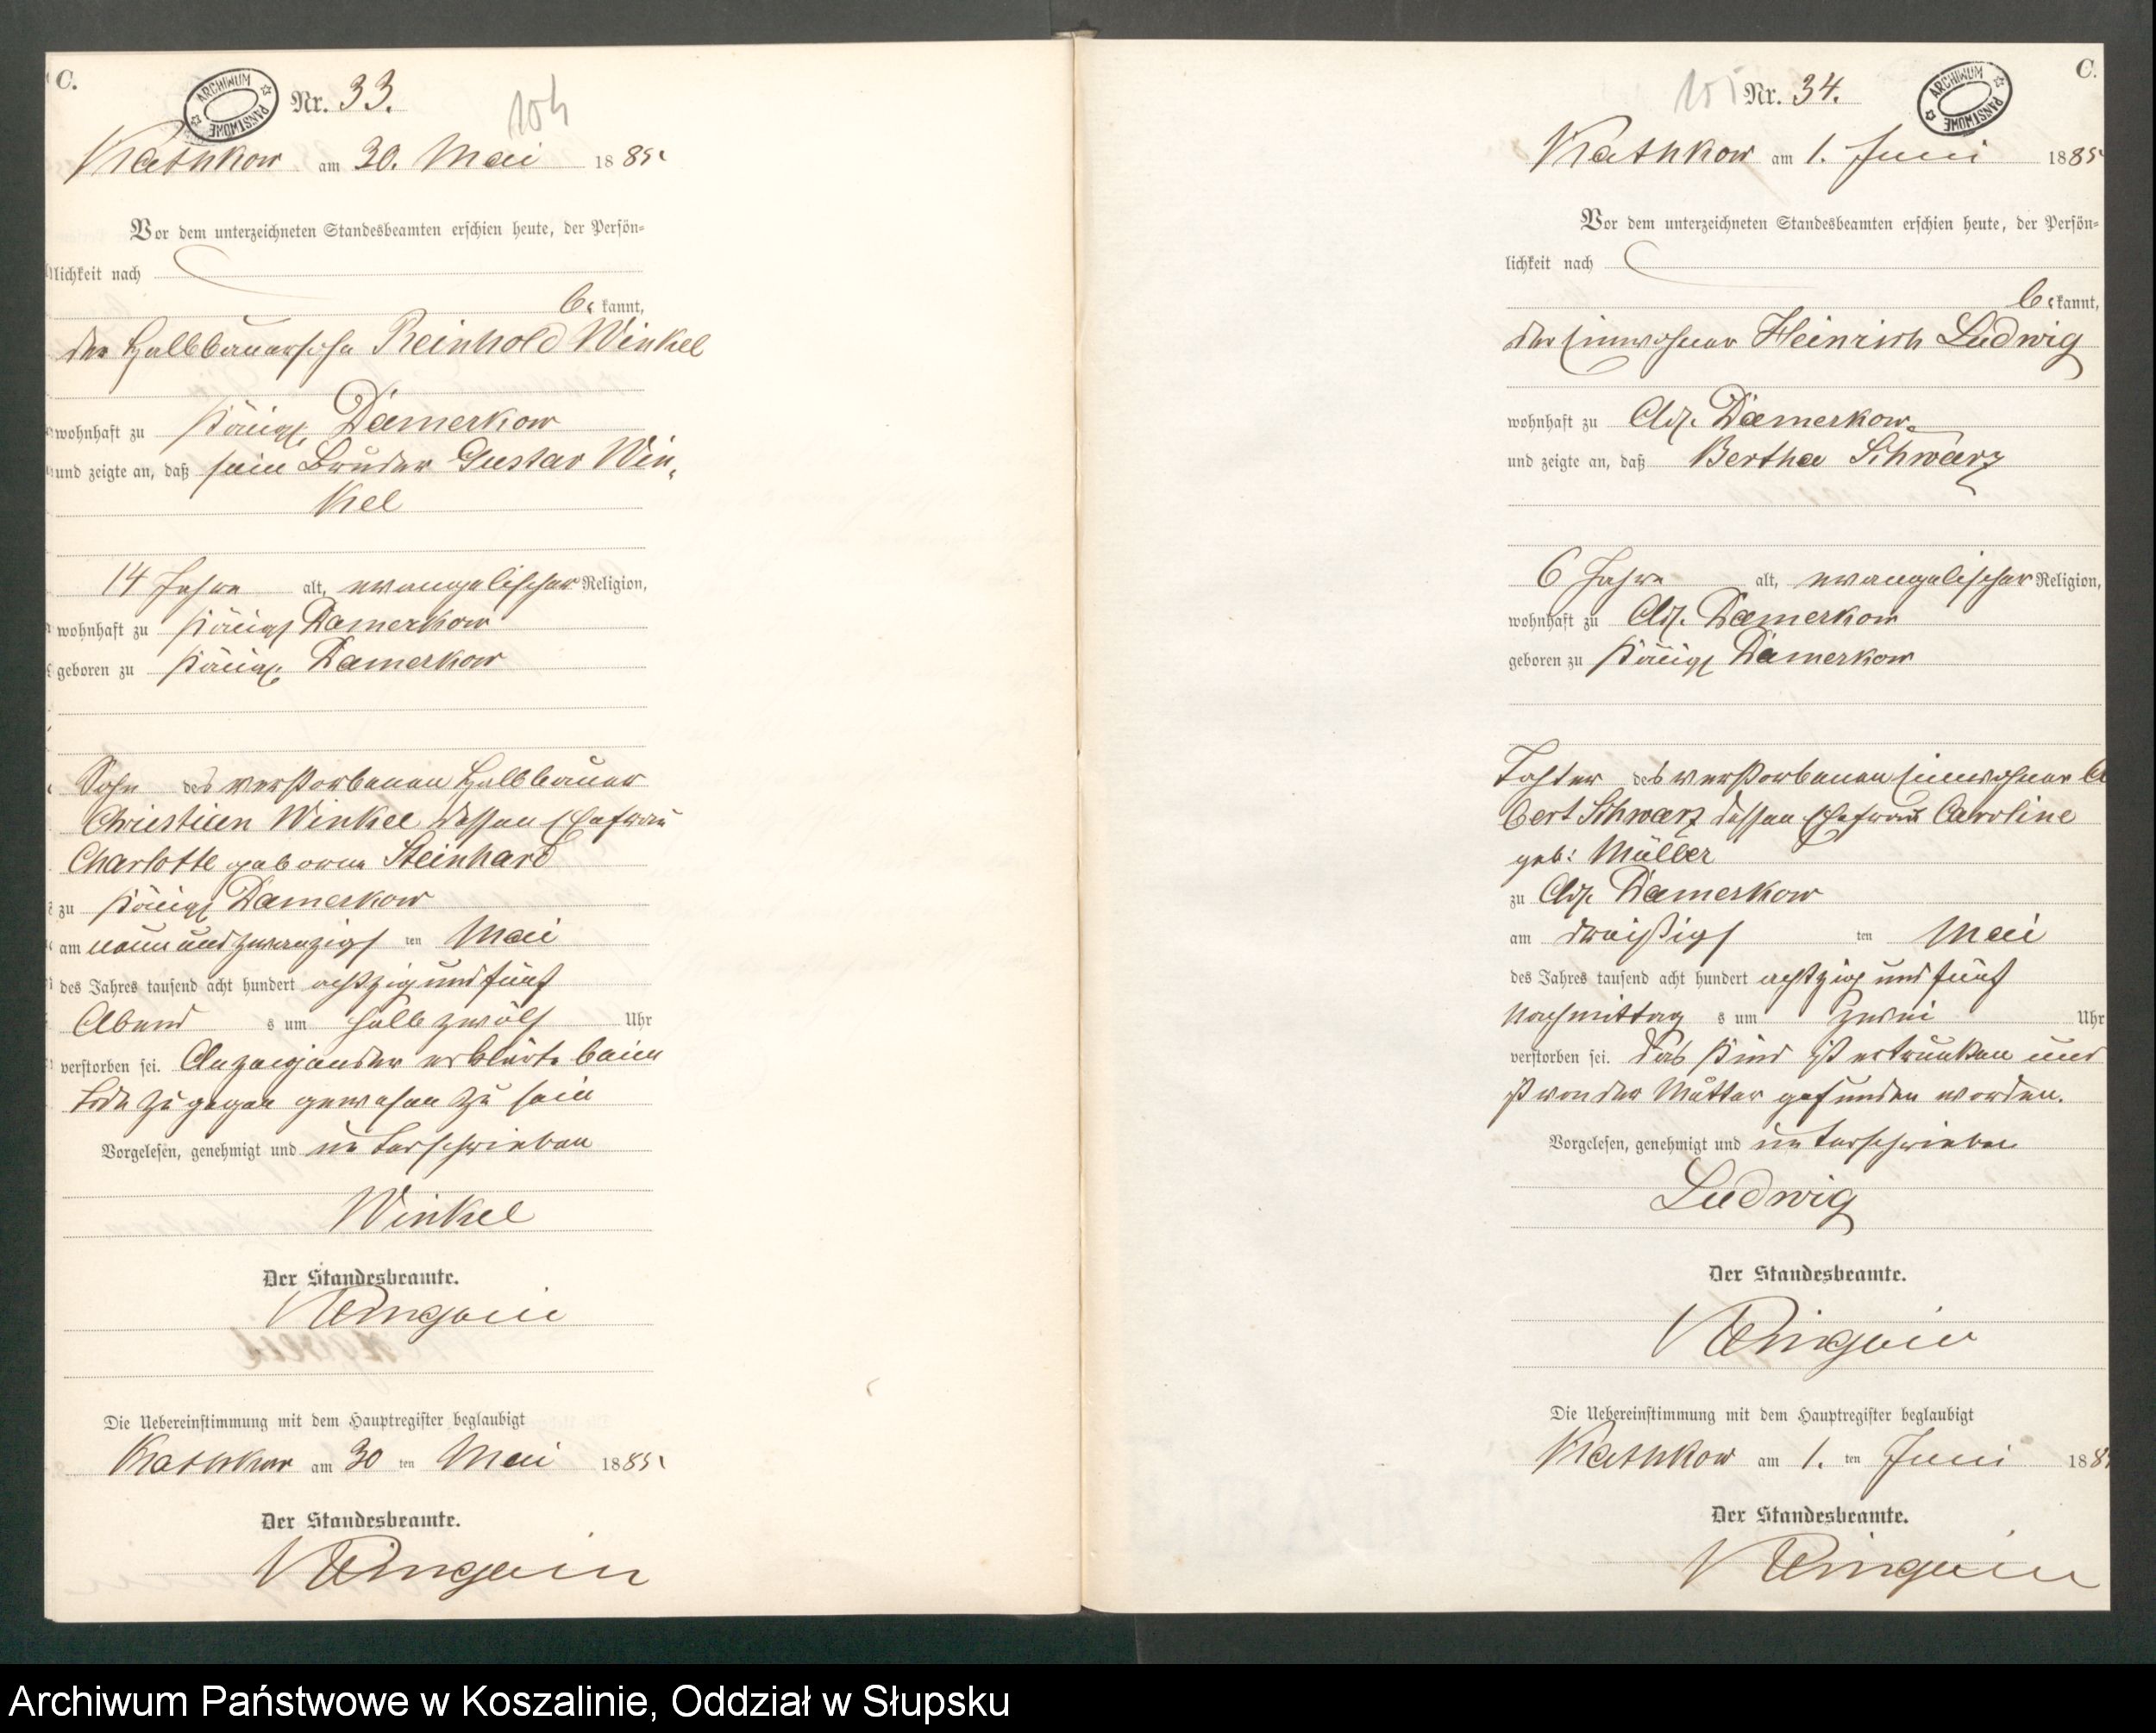 C.
ARCHIWUM PAŃSTWOWE
Nr. 33.
104
Kathkow am 30. Mai 1885
Vor dem unterzeichneten Standesbeamten erschien heute, der Persön-
lichkeit nach
be kannt,
der Halbbauersohn Reinhold Winkel
wohnhaft zu Königl. Damerkow
und zeigte an, daß sein Bruder Gustav Win-
kel
14 Jahre alt, evangelischer Religion,
wohnhaft zu Königl Damerkow
geboren zu Königl. Damerkow
Sohn des verstorbenen Halbbauer
Christian Winkel dessen Ehefrau
Charlotte geborne Steinhard
zu Königl Damerkow
am neunundzwanzigs ten Mai
des Jahres tausend acht hundert achtzig und fünf
Abend s um halb zwölf Uhr
verstorben sei. Anzeigender erklärte beim
Tode zugegen gewesen zu sein
Vorgelesen, genehmigt und unterschrieben
Winkel
Der Standesbeamte.
Die Uebereinstimmung mit dem Hauptregister beglaubigt
Kathkow am 30 ten Mai 1885
Der Standesbeamte.
C.
ARCHIWUM PAŃSTWOWE
105 Nr. 34.
Kathkow am 1. Juni 1885
Vor dem unterzeichneten Standesbeamten erschien heute, der Persön-
lichkeit nach
be kannt,
der Einwohner Heinrich Ludwig
wohnhaft zu Adl. Damerkow
und zeigte an, daß Bertha Schwarz
6 Jahre alt, evangelischer Religion,
wohnhaft zu Adl. Damerkow
geboren zu Königl Damerkow
Tochter des verstorbenen Einwohner Al
bert Schwarz dessen Ehefrau Caroline
geb: Müller
zu Adl. Damerkow
am dreißigs ten Mai
des Jahres tausend acht hundert achtzig und fünf
Nachmittag s um zwei Uhr
verstorben sei. Das Kind ist ertrunken und
ist von der Mutter gefunden worden.
Vorgelesen, genehmigt und unterschrieben
Ludwig
Der Standesbeamte.
Die Uebereinstimmung mit dem Hauptregister beglaubigt
Kathkow am 1. ten Juni 188
Der Standesbeamte.
Archiwum Państwowe w Koszalinie, Oddział w Słupsku